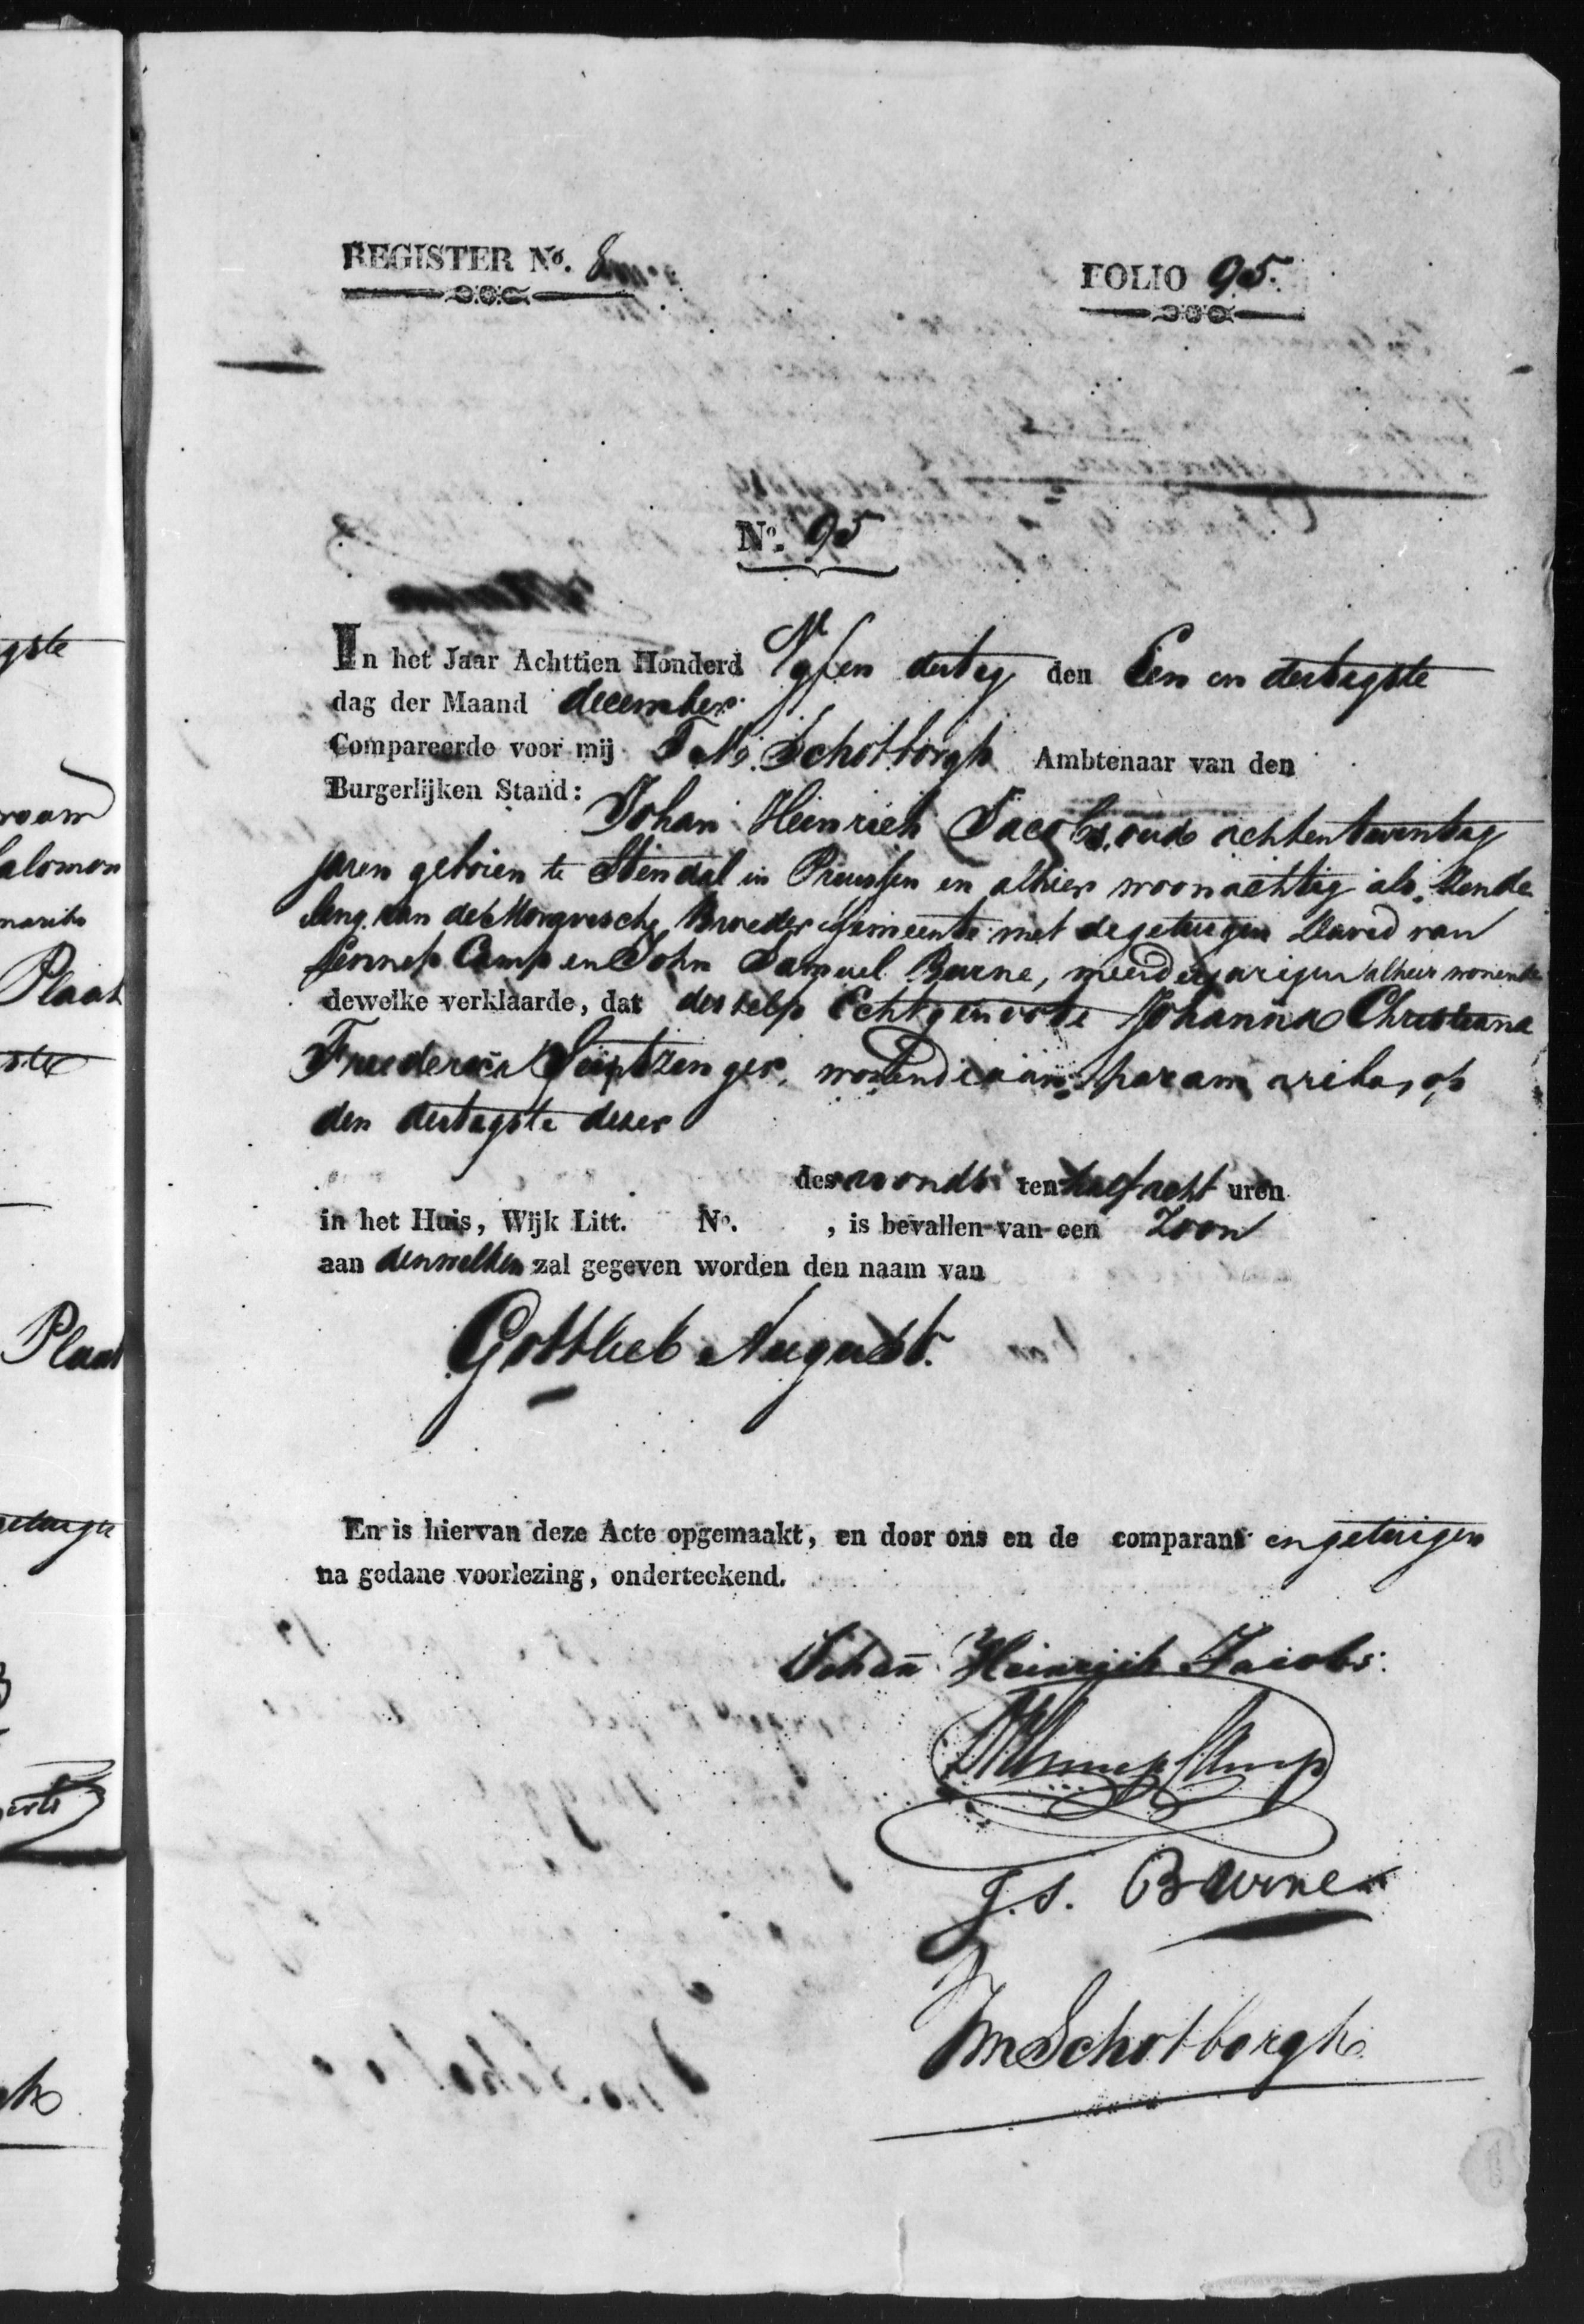 REGISTER No. 8
FOLIO 95.
gste
No. 95
In het Jaar Achttien Honderd Vyf en dertig den Een en dertigste
dag der Maand december
Compareerde voor mij Schotborgh Ambtenaar van den
Burgerlijken Stand:
Johan Heinrich Jacobs, oud achtentwintig
jaren geboren te Stendal in Pruissen en alhier woonachtig als Zende
ling van de Moravische Broeder Gemeente met de getuigen David van
Lennep Camp en John Samuel Burne, meerderjarigen alhier wonende
dewelke verklaarde, dat deszelfs Echtgenoote Johanna Christiana
wonende aan paramaribo, op
den dertigste dezer
des avonds ten half acht uren
in het Huis, Wijk Litt. No. , is bevallen van een Zoon
aan denwelken zal gegeven worden den naam van
Gottlieb August.
En is hiervan deze Acte opgemaakt, en door ons en de comparant en getuigen
na gedane voorlezing, onderteekend.
Johan̄ Heinrich Jacobs.
Lennep Camp
J. S. Burne
Schotborgh
raam
alomon
maribo
Plaat
ste
Plaat